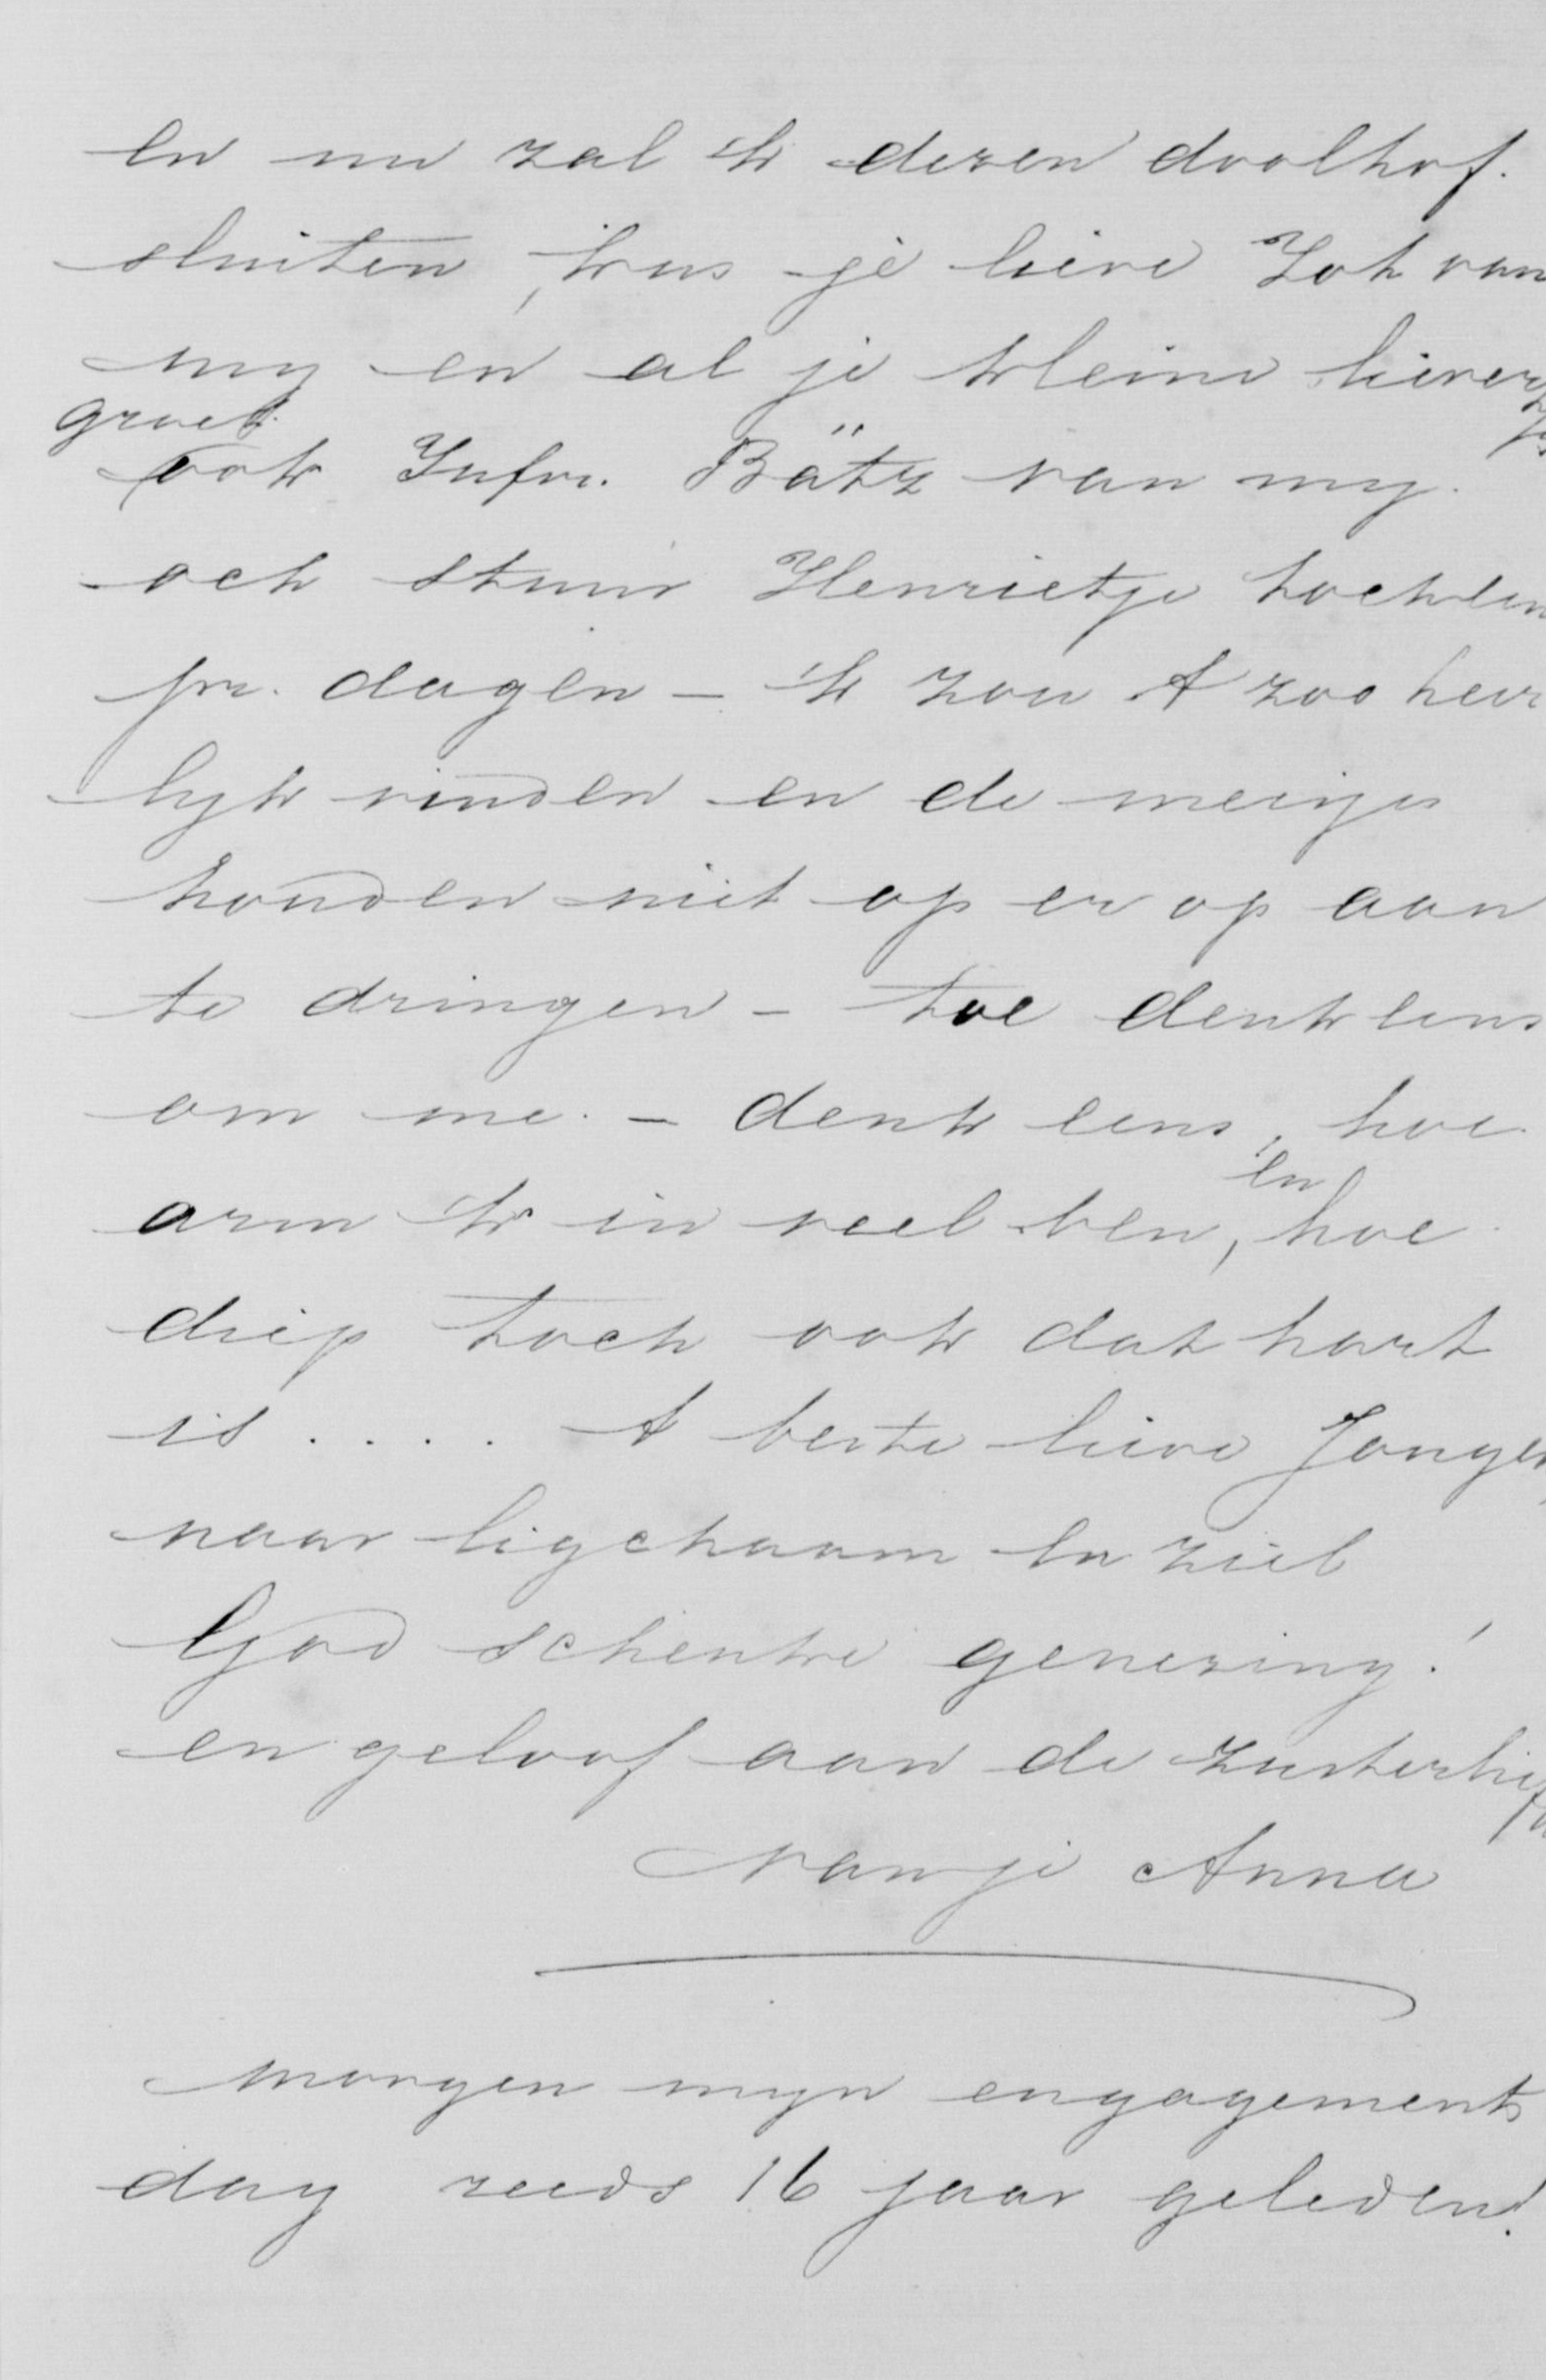 en nu zal ik dezen doolhof.
sluiten, kus je lieve Joh van
my en al je kleine lieverdjes
groet
ook Jufvr. Bätz van my.
och stuur Henrietje toch een
pr. dagen – ik zou 't zoo heer
lyk vinden en de meisjes
houden niet op er op aan
te dringen – toe denk eens
om me. – denk eens, hoe
arm ik in veel ben, en hoe
diep toch ook dat hart
is .... 't beste lieve Jongen
naar ligchaam en ziel
God schenke genezing!
en geloof aan de zusterliefde
van je Anna
morgen myn engagements
dag reeds 16 jaar geleden!